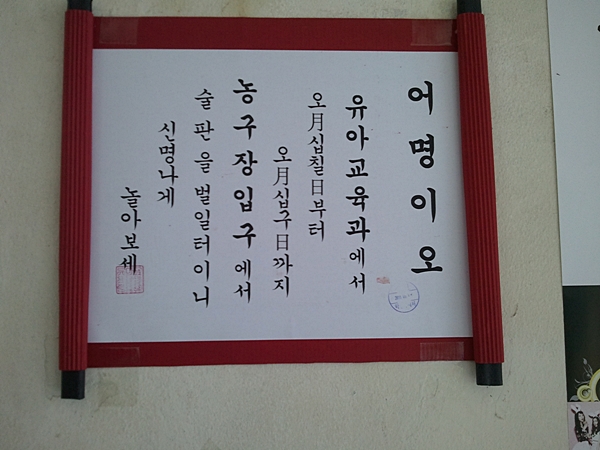 어명이오
유아교육과에서
오月십칠日부터
오月십구日까지
농구장입구에서
술판을벌일터이니
신명나게
놀아보세